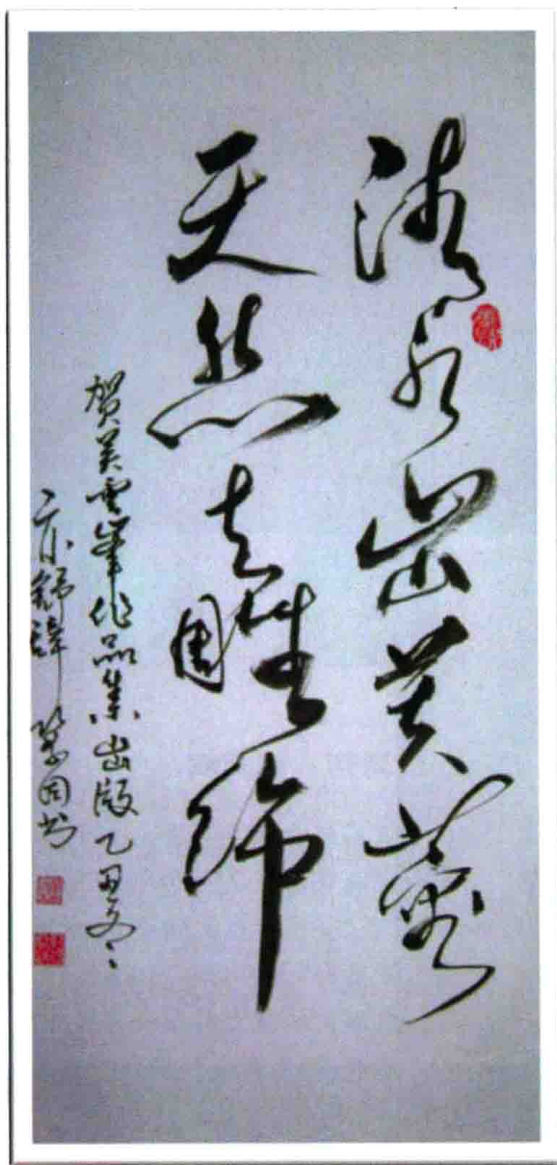 清水出芙蓉
天然去雕饰
贺吴雲峯作品集出版乙丑冬